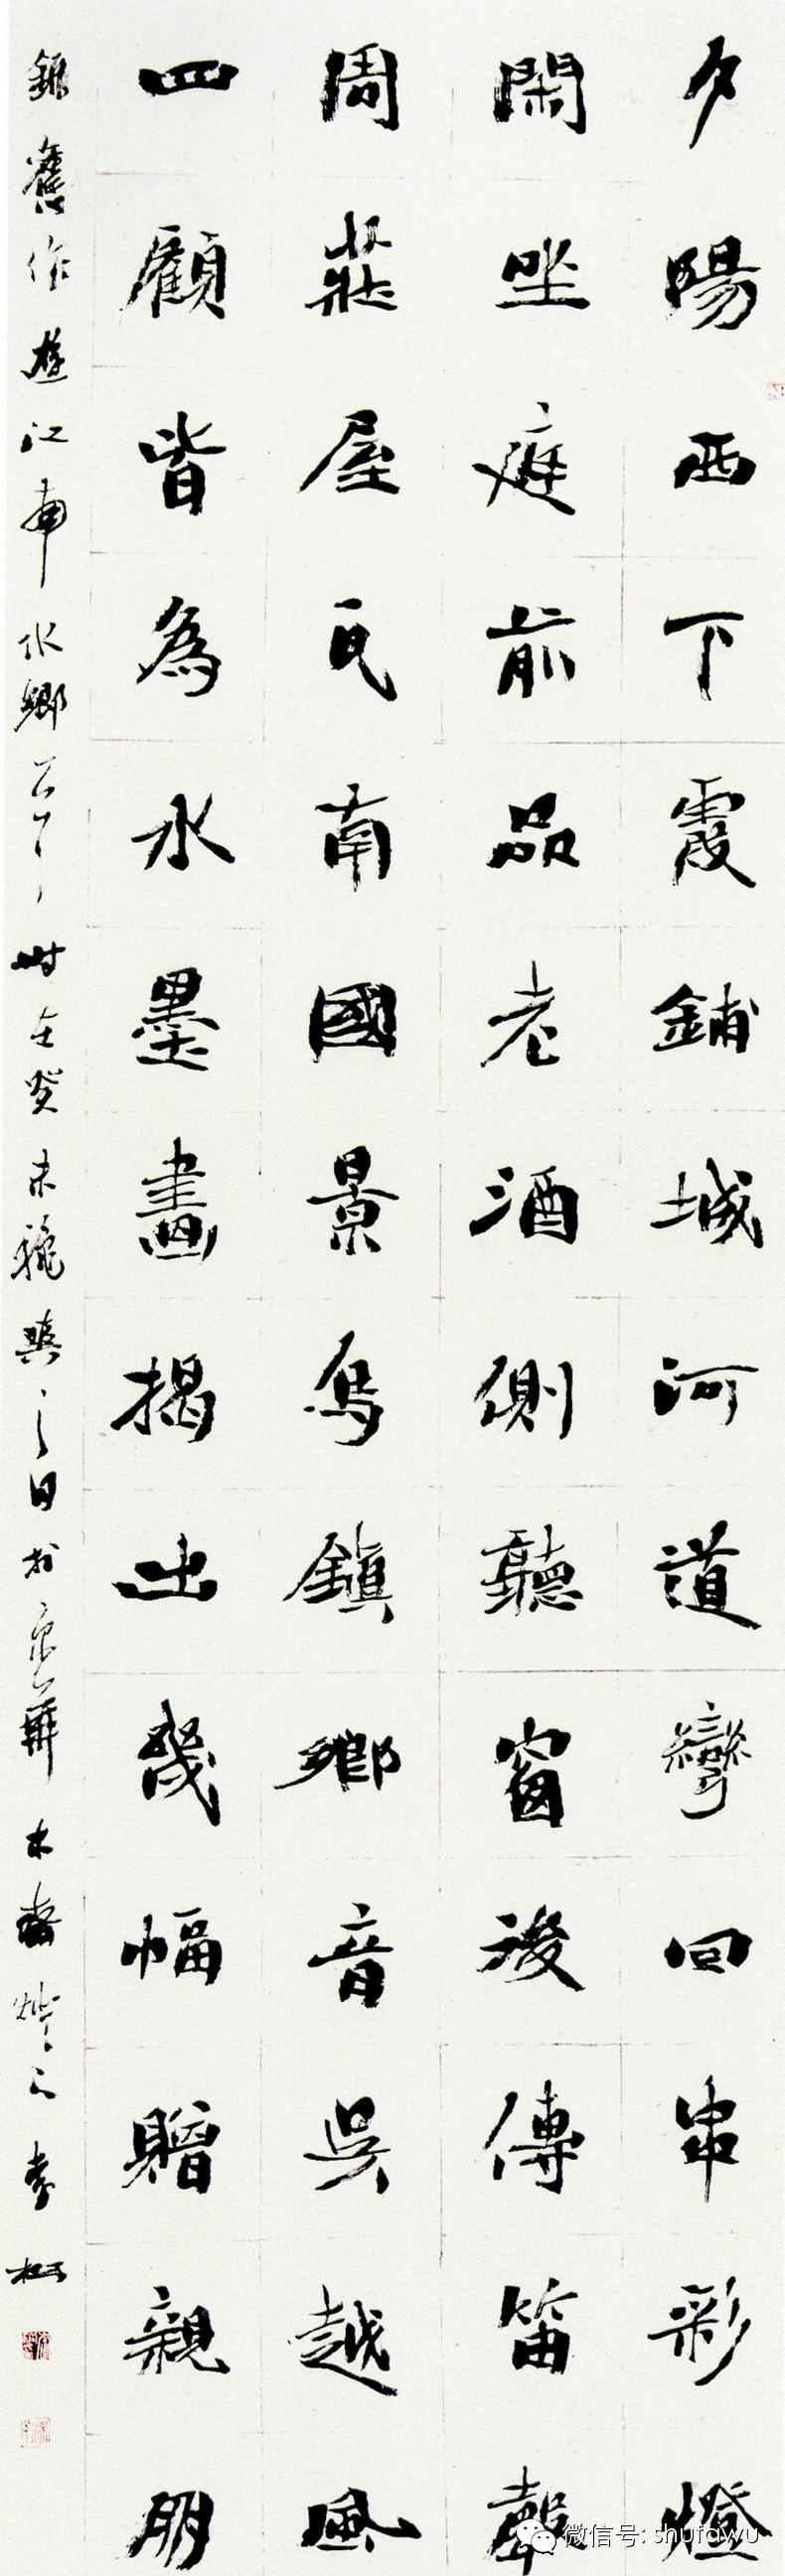 夕陽西下霞鋪城河道彎回串彩燈
閑坐庭前品老酒側聽窗後傳笛聲
周莊屋瓦南國景烏鎮鄉音吳越風
四顧皆為水墨畫揭出幾幅贈親朋
錄舊作遊江南水鄉 時在癸未 之日於京華
微信号: shufawu